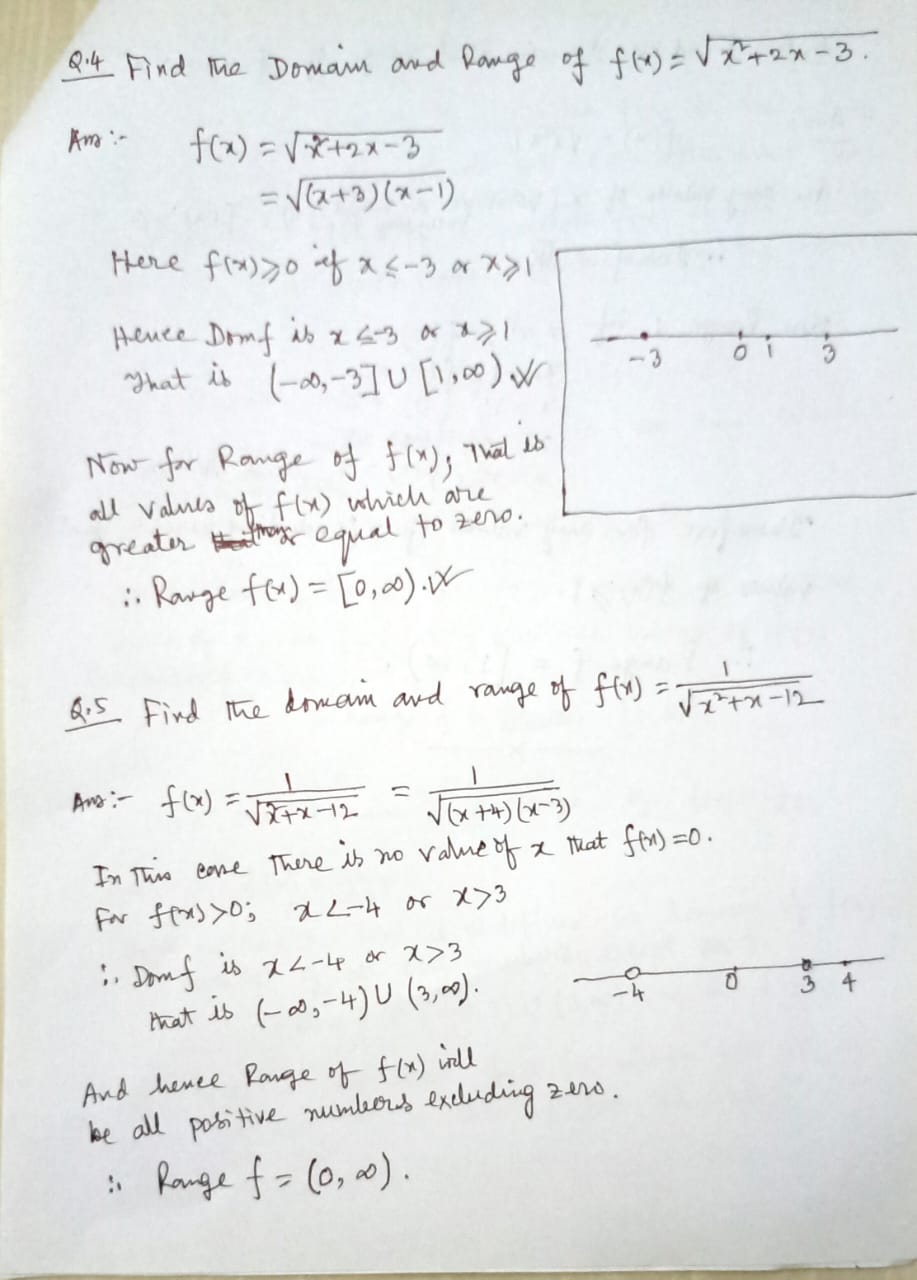 Q.4 Find the Domain and Range of f(x) = √x²+2x-3.
Ans:- f(x) = √x²+2x-3
= √(x+3)(x-1)
Here f(x)≥0 if x≤-3 or x≥1
Hence Domf is x≤-3 or x≥1
That is (-∞,-3]∪[1,∞).
-3 0 1 3
Now for Range of f(x); That is
all values of f(x) which are
greater than or equal to zero.
∴ Range f(x) = [0,∞).
Q.5 Find the domain and range of f(x) = 1/√x²+x-12
Ans:- f(x) = 1/√x²+x-12 = 1/√(x+4)(x-3)
In This case There is no value of x that f(x)=0.
For f(x)>0; x<-4 or x>3
∴ Domf is x<-4 or x>3
that is (-∞,-4)∪(3,∞).
-4 0 3 4
And hence Range of f(x) will
be all positive numbers excluding zero.
∴ Range f = (0,∞).